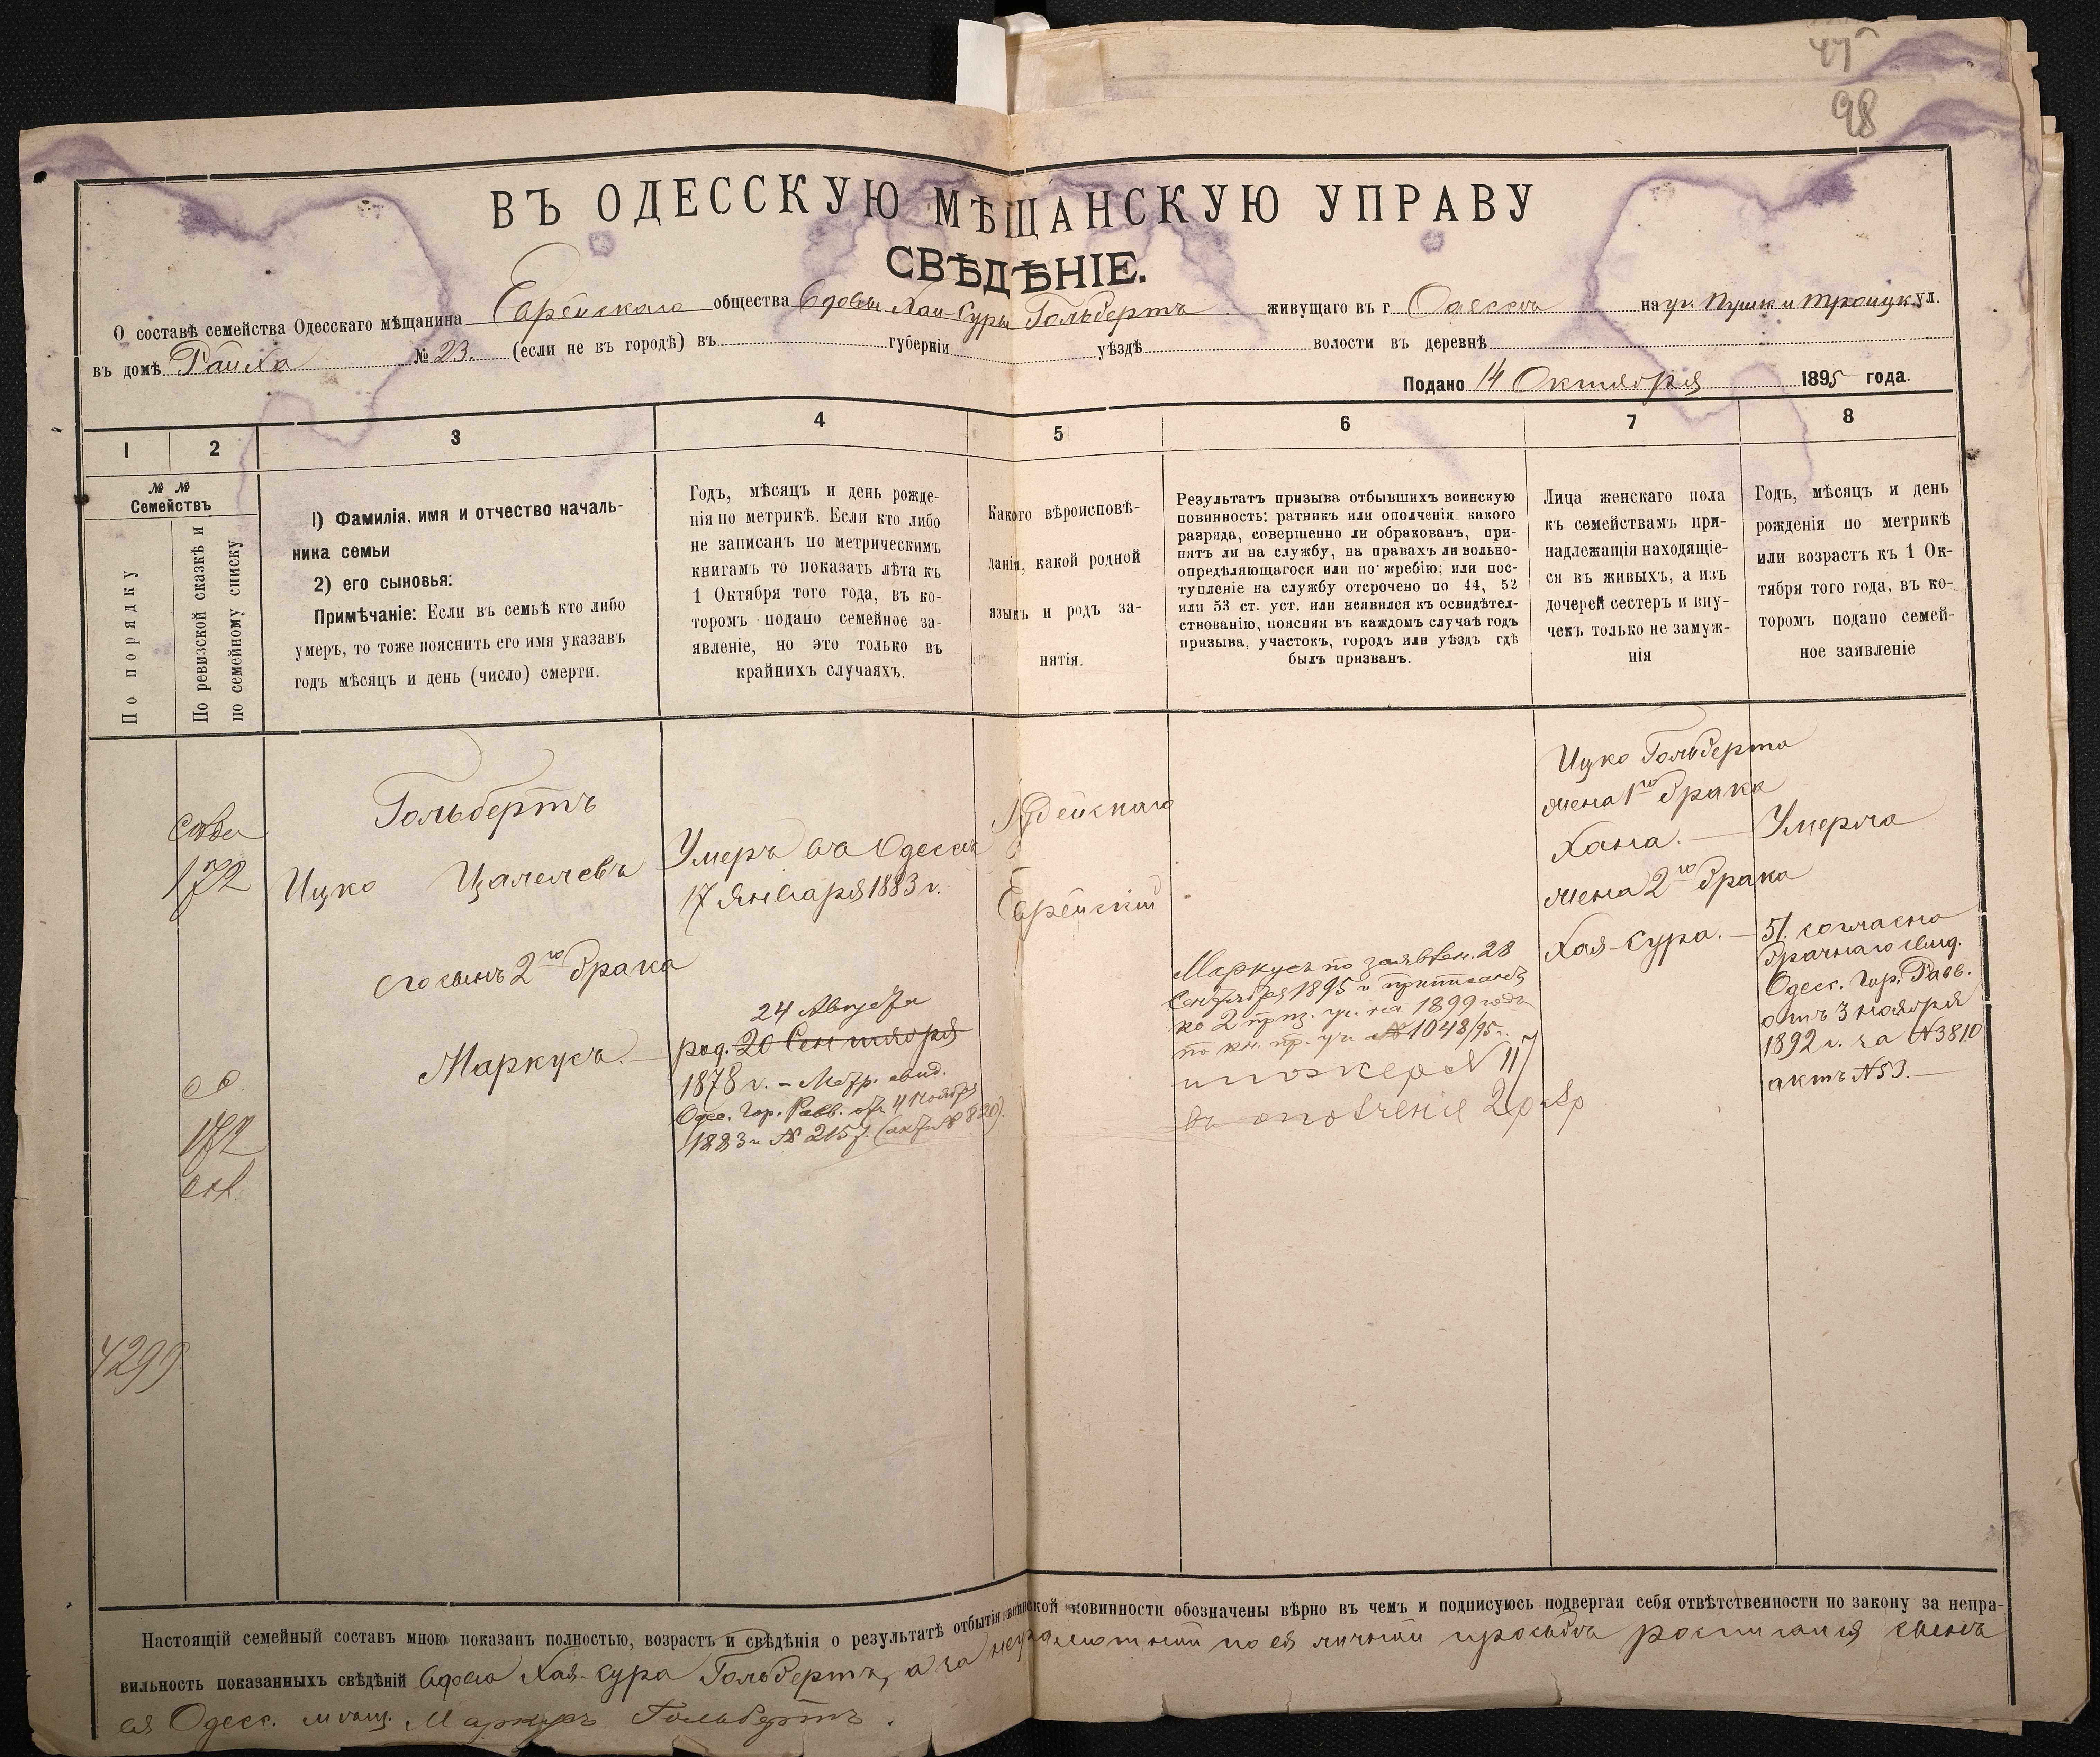 98
ВЪ ОДЕССКУЮ МѢЩАНСКУЮ УПРАВУ
СВѢДѢНІЕ.
О составѣ семейства Одесскаго мѣщанина Еврейскаго общества Вдовы Хаи-Суры Гольбертъ живущаго въ г. Одессѣ на уг. Пушк и Троицк ул.
въ домѣ Райха № 23. (если не въ городѣ) въ губерніи уѣздѣ волости въ деревнѣ
Подано 14 Октября 1895 года.
1 2 3 4 5 6 7 8
№ №
Семействъ
По порядку
По ревизской сказкѣ и
по семейному списку
1) Фамилія, имя и отчество началь-
ника семьи
2) его сыновья:
Примѣчаніе: Если въ семьѣ кто либо
умеръ, то тоже пояснить его имя указавъ
годъ мѣсяцъ и день (число) смерти.
Годъ, мѣсяцъ и день рожде-
нія по метрикѣ. Если кто либо
не записанъ по метрическимъ
книгамъ то показать лѣта къ
1 Октября того года, въ ко-
торомъ подано семейное за-
явленіе, но это только въ
крайнихъ случаяхъ.
Какого вѣроисповѣ-
данія, какой родной
языкъ и родъ за-
нятія.
Результатъ призыва отбывшихъ воинскую
повинность: ратникъ или ополченія какого
разряда, совершенно ли обракованъ, при-
нятъ ли на службу, на правахъ ли вольно-
опредѣляющагося или по жребію; или пос-
тупленіе на службу отсрочено по 44, 52
или 53 ст. уст. или неявился къ освидѣтел-
ствованію, поясняя въ каждомъ случаѣ годъ
призыва, участокъ, городъ или уѣздъ гдѣ
былъ призванъ.
Лица женскаго пола
къ семействамъ при-
надлежащія находящіе-
ся въ живыхъ, а изъ
дочерей сестеръ и вну-
чекъ только не замуж-
нія
Годъ, мѣсяцъ и день
рожденія по метрикѣ
или возрастъ къ 1 Ок-
тября того года, въ ко-
торомъ подано семей-
ное заявленіе
172
Гольбертъ
Ицко Цалелевъ
его сынъ 2го брака
Маркусъ.
Умеръ въ Одессѣ
17 Января 1883 г.
24 Августа
род. 20 Сентября
1878 г. – Метр. свид.
Одес. Гор. Равв. отъ 4 Ноября
1883 г № 2157. (актъ № 820).
Іудейскаго
Еврейскій
Маркусъ по заявлен. 28
Сентября 1895 г приписанъ
ко 2 приз. уч. на 1899 годъ
по кн. пр. уч. № 1048/95 г.
№ 117
въ ополченіе 2 разр
Ицко Гольберта
жена 1го брака
Хана. — Умерла
жена 2го брака
Хая-Сура. — 51. согласно
брачнаго свид.
Одесс. Гор. Равв.
отъ 3 ноября
1892 г. за №3810
актъ №53. —
172
4299
Настоящій семейный составъ мною показанъ полностью, возрастъ и свѣдѣнія о результатѣ отбытія воинской повинности обозначены вѣрно въ чемъ и подписуюсь подвергая себя отвѣтственности по закону за непра-
вильность показанныхъ свѣдѣній вдова Хая-Сура Гольбертъ, а за неграмотной по ея личной просьбѣ росписался сынъ
ея Одесс. мѣщ. Маркусъ Гольбертъ.